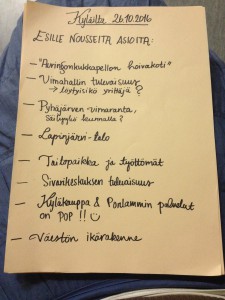 Kyläilta 26.10.2016
ESILLE NOUSSEITA ASIOITA:
- "Auringonkukkapellon hoivakoti"
- Vimahallin tulevaisuus
→ löytyisikö yrittäjä?
- Pyhäjärven-uimaranta,
säilyykö kunnalla?
- Lapinjärvi-talo
- Tailopaikka ja työttömät
- Sivarikeskuksen tulevaisuus
- Kyläkauppa & Porlammin palvelut
on POP !! ☺
- Väestön ikärakenne